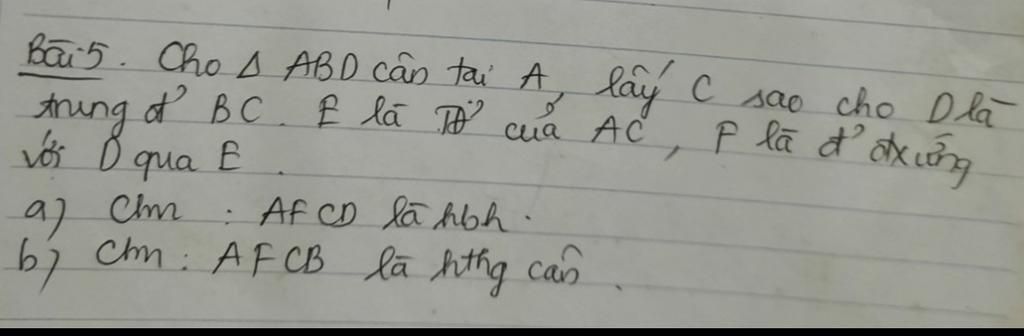 Bài 5. Cho Δ ABD cân tại A, lấy C sao cho D là
trung đ' BC. E là TĐ' của AC, F là đ' đxứng
với D qua E.
a) Cm: AFCD là hbh.
b) Cm: AFCB là hthg cân.